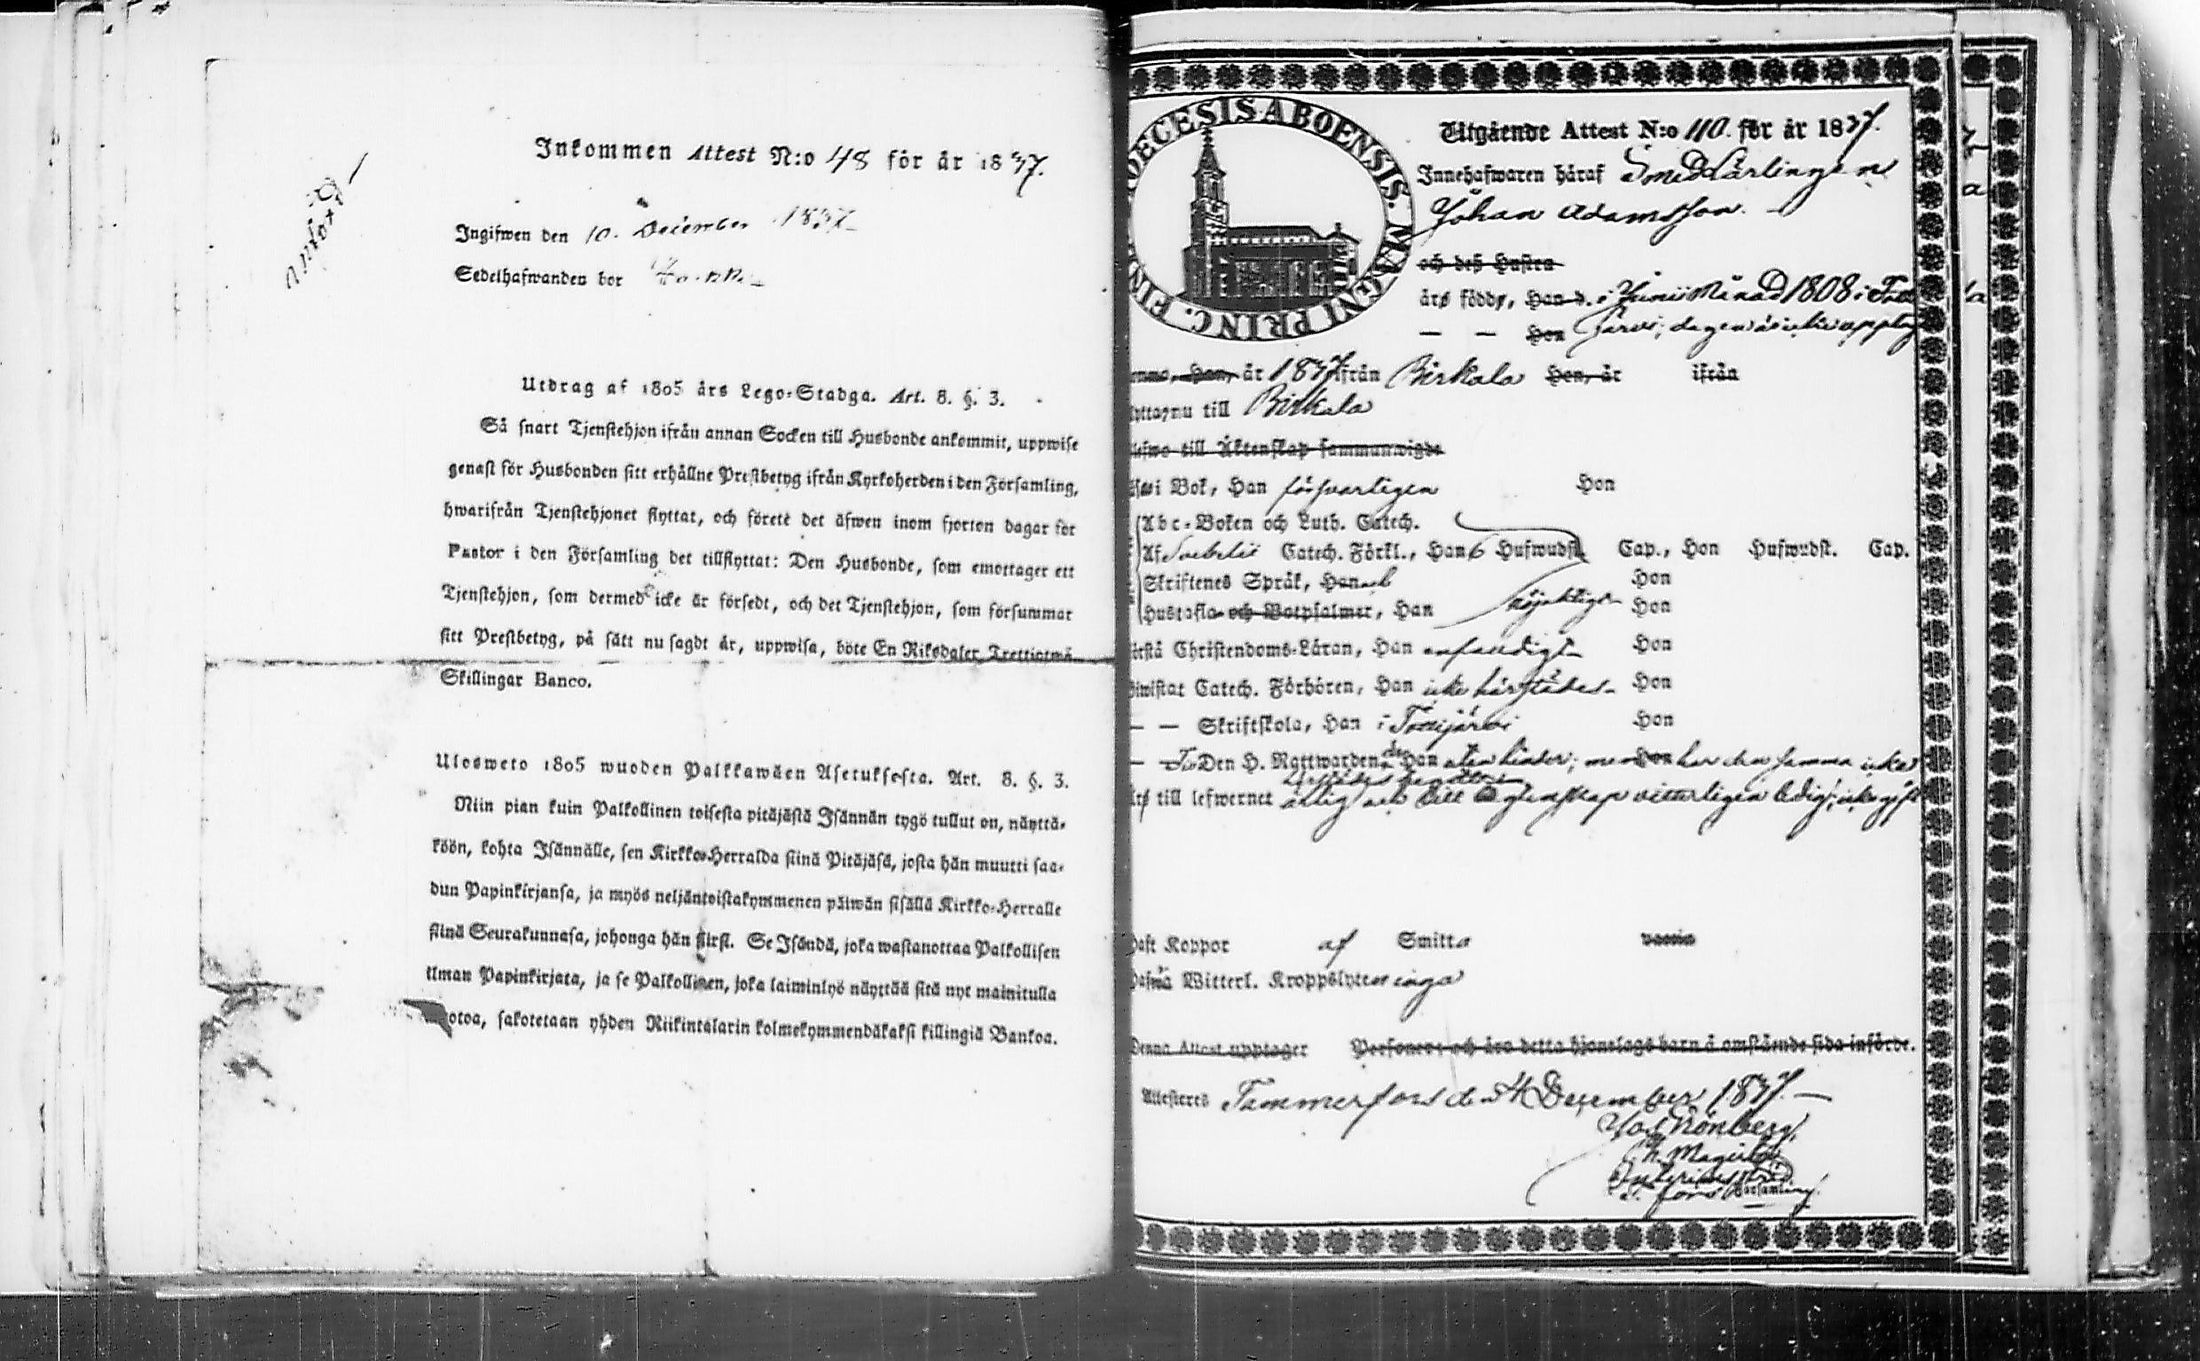 Inkommen Attest N:o 48 för år 1837.
Ingifwen den 10. December 1837
Sedelhafwanden bor
Utdrag af 1805 års Lego-Stadga. Art. 8. §. 3.
Så snart Tjenstehjon ifrån annan Socken till Husbonde ankommit, uppwise
genast för Husbonden sitt erhållne Prestbetyg ifrån Kyrkoherden i den Församling,
hwarifrån Tjenstehjonet flyttat, och förete det äfwen inom fjorton dagar för
Pastor i den Församling det tillflyttat: Den Husbonde, som emottager ett
Tjenstehjon, som dermed icke är försedt, och det Tjenstehjon, som försummar
sitt Prestbetyg, på sätt nu sagdt är, uppwisa, böte En Riksdaler Trettiotwå
Skillingar Banco.
Ulosweto 1805 wuoden Palkkawäen Asetuksesta. Art. 8. §. 3.
Niin pian kuin Palkollinen toisesta pitäjästä Isännän tygö tullut on, näyttä-
köön, kohta Isännälle, sen Kirkko-Herralda siinä Pitäjäsä, josta hän muutti saa-
dun Papinkirjansa, ja myös neljäntoistakymmenen päiwän sisällä Kirkko-Herralle
siinä Seurakunnasa, johonga hän siirst. Se Isändä, joka wastanottaa Palkollisen
ilman Papinkirjata, ja se Palkollinen, joka laiminlyö näyttää sitä nyt mainitulla
otoa, sakotetaan yhden Riikintalarin kolmekymmendäkaksi killingiä Bankoa.
DIOECESIS ABOENSIS. MAGNI PRINC. FIN
Utgående Attest N:o 110. för år 1837.
Innehafwaren häraf Smedlärlingen
Johan Adamsson.
och deß Hustru
äro födde, Han d. i Junii Månad 1808 i Totti
— — Hon järvi;
Han, år 1837 ifrån Birkala Hon, år ifrån
nu till Birkala
till Äktenskap sammanwigde
i Bok, Han försvarligen Hon
Abc-Boken och Luth. Catech.
Af Svebelii Catech. Förkl., Han 6 Hufwudst. Cap., Hon Hufwudst. Cap.
Skriftenes Språk, Han Hon
Hustafla och Botpsalmer, Han nöjaktigt Hon
Christendoms-Läran, Han enfaldigt Hon
Catech. Förhören, Han icke härstädes Hon
— — Skriftskola, Han i Tottijärvi Hon
— Den H. Nattwarden, Han utan hinder; men Hon har den samma icke
härstädes begått
till lefwernet ärlig och till Egtenskap vitterligen ledig, icke gift
haft Koppor af Smitta vaccin
Witterl. Kroppslyten inga
Denna Attest upptager Personer: och äro detta hjonelags barn å omstående sida införde.
Attesteras Tammerfors den 4 December 1837. —
Grönberg,